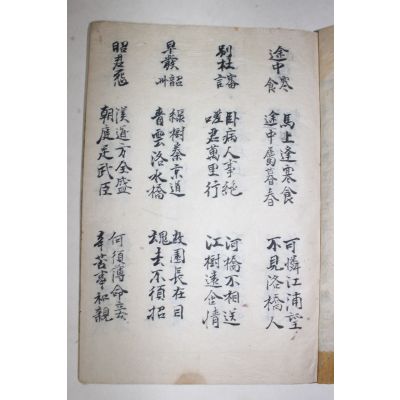 途中寒食
馬上逢寒食
途中屬暮春
可憐江浦望
不見洛橋人
別杜審言
卧病人事絶
嗟君萬里行
河橋不相送
江樹遠含情
早發韶州
綠樹秦京道
青雲洛水橋
故園長在目
魂去不須招
昭君怨
漢道方全盛
朝庭足武臣
何須薄命妾
辛苦事和親